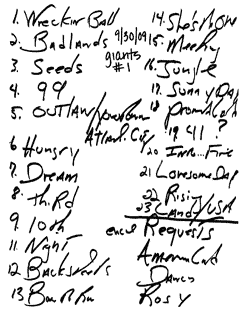 1. Wreckin' Ball
2. Badlands
9/30/09
giants
#1
3. Seeds
4. 99
5. OUTLAW/
Atlant. City
6 Hungry
7. Dream
8. Th. Rd
9. 10th
11. Night
12 Backstreets
13. Bon R Run
14. She's the One
15. 
16. Jungle
17. Sunny Day
18 promised Land
19 41 ?
20 Fire
21 Lonesome Day
22 Rising
23 Candy/USA
encore Requests
American Land
Dance
Rosy